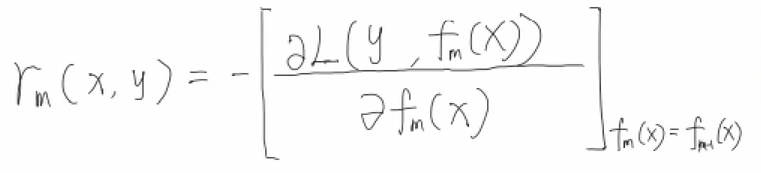 r_m(x, y) = -[∂L(y, f_m(x)) / ∂f_m(x)]_{f_m(x) = f_{m-1}(x)}